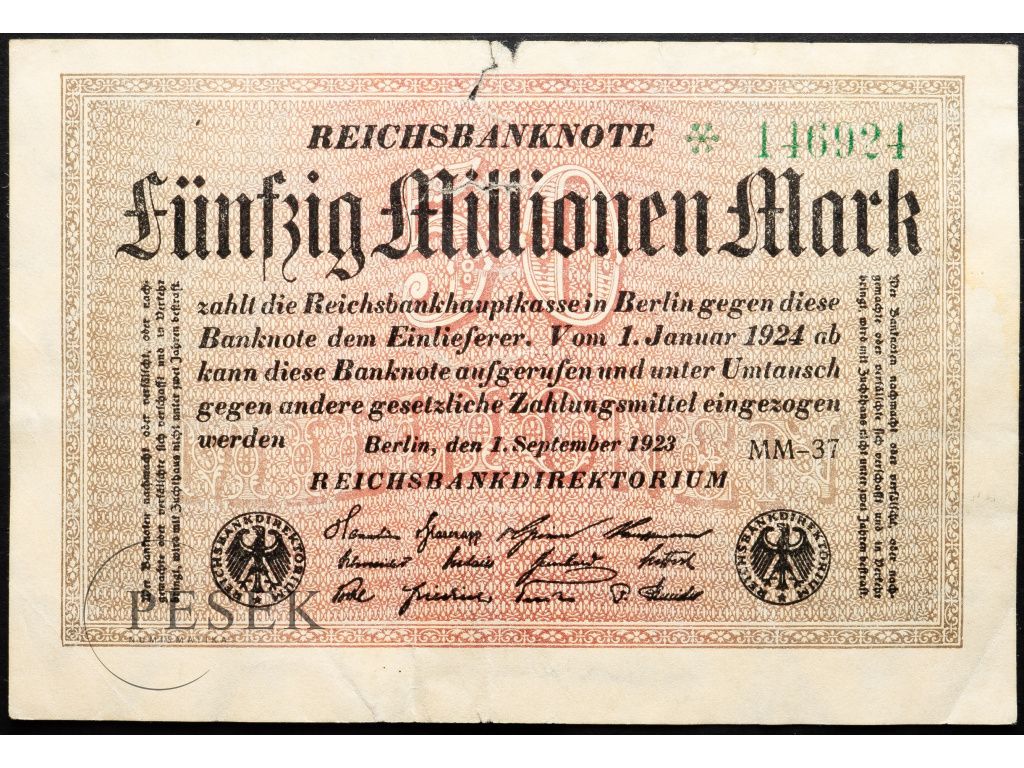 REICHSBANKNOTE * 146924
50
Fünfzig Millionen Mark
zahlt die Reichsbankhauptkasse in Berlin gegen diese
Banknote dem Einlieferer. Vom 1. Januar 1924 ab
kann diese Banknote aufgerufen und unter Umtausch
gegen andere gesetzliche Zahlungsmittel eingezogen
werden
MILLIONEN
Berlin, den 1. September 1923
MM-37
REICHSBANKDIREKTORIUM
REICHSBANKDIREKTORIUM
REICHSBANKDIREKTORIUM
Wer Banknoten nachmacht oder verfälscht, oder nach-
gemachte oder verfälschte sich verschafft und in Verkehr
bringt, wird mit Zuchthaus nicht unter zwei Jahren bestraft
Wer Banknoten nachmacht oder verfälscht oder nach-
gemachte oder verfälschte sich verschafft und in Verkehr
bringt wird mit Zuchthaus nicht unter zwei Jahren bestraft
PESEK
NUMISMATIKA